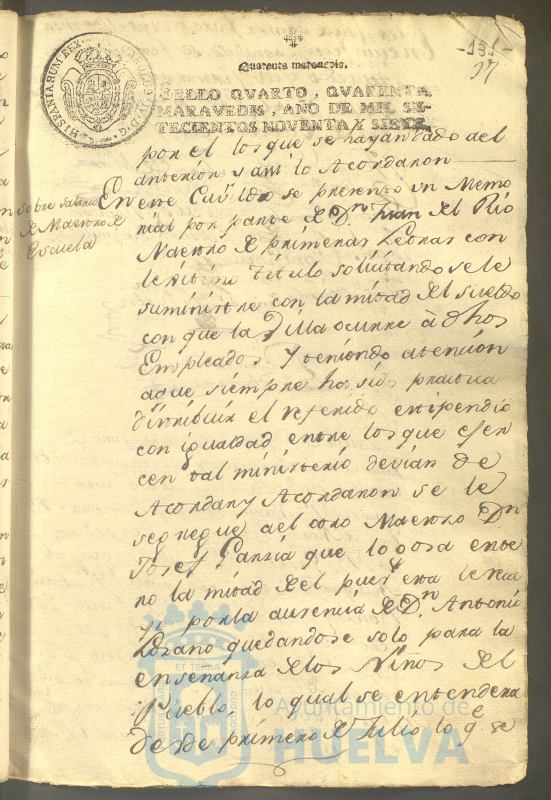 -131-
97
HISPANIARUM REX
Quarenta maravedis.
SELLO QVARTO, QVARENTA
MARAVEDIS, AÑO DE MIL SE-
TECIENTOS NOVENTA Y SIETE.
por el los que se hayan dado del
anterior y asi lo Acordaron
Sobre salario
de Maestro de
Escuela
En este Cavildo se presentó un Memo
rial por parte de Dn Juan del Rio
Maestro de primeras Letras con
lexitimo titulo solicitando se le
suministre con la mitad del sueldo
con que la Villa ocurre à dhos
Empleados. Y teniendo atencion
aque siempre ha sido practica
distribuir el referido estipendio
con igualdad entre los que ejer
cen tal ministerio devian de
Acordar y Acordaron se le
segregue ael otro Maestro Dn
Josef Garzia que lo gosa ente
ro la mitad del
por la ausencia de Dn Antonio
Lozano quedandose solo para la
enseñanza de los Niños del
Pueblo, lo qual se entendera
desde primero de Julio lo qe se
ET TERRAE
Ayuntamiento de
HUELVA